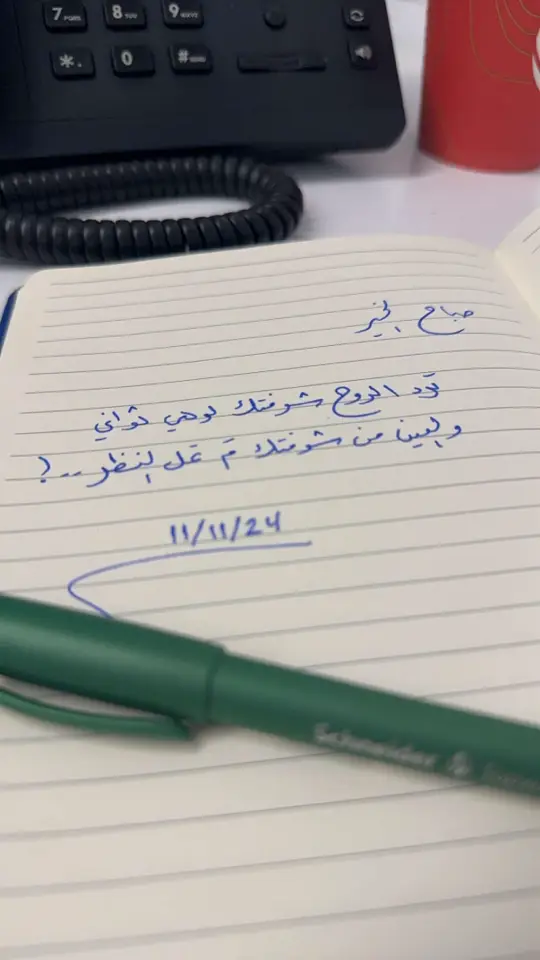 7 PQRS 8 TUV 9 WXYZ
*. 0 #
صباح الخير
تود الروح شوفتك لو هي ثواني
والعين من شوفتك مَ تمل النظر ..؟
11/11/24
Schneider